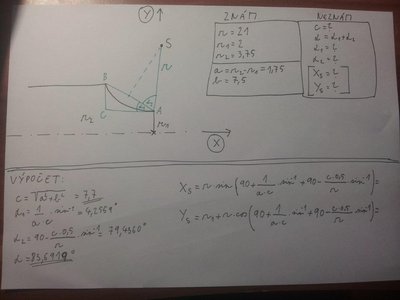 Y
S
r
B
C
A
r₂
r₁
X
ZNÁM
r = 21
r₁ = 2
r₂ = 3,75
a = r₂ - r₁ = 1,75
b = 7,5
NEZNÁM
c = ?
α = α₁ + α₂
α₁ = ?
α₂ = ?
Xₛ = ?
Yₛ = ?
VÝPOČET:
c = √a²+b² = 7,7
α₁ = 1/a·c · sin⁻¹ = 4,2559°
α₂ = 90 - c·0,5/r · sin⁻¹ = 79,4360°
α = 83,6919°
Xₛ = r · sin (90 + 1/a·c · sin⁻¹ + 90 - c·0,5/r · sin⁻¹) =
Yₛ = r₁ + r · cos (90 + 1/a·c · sin⁻¹ + 90 - c·0,5/r · sin⁻¹) =